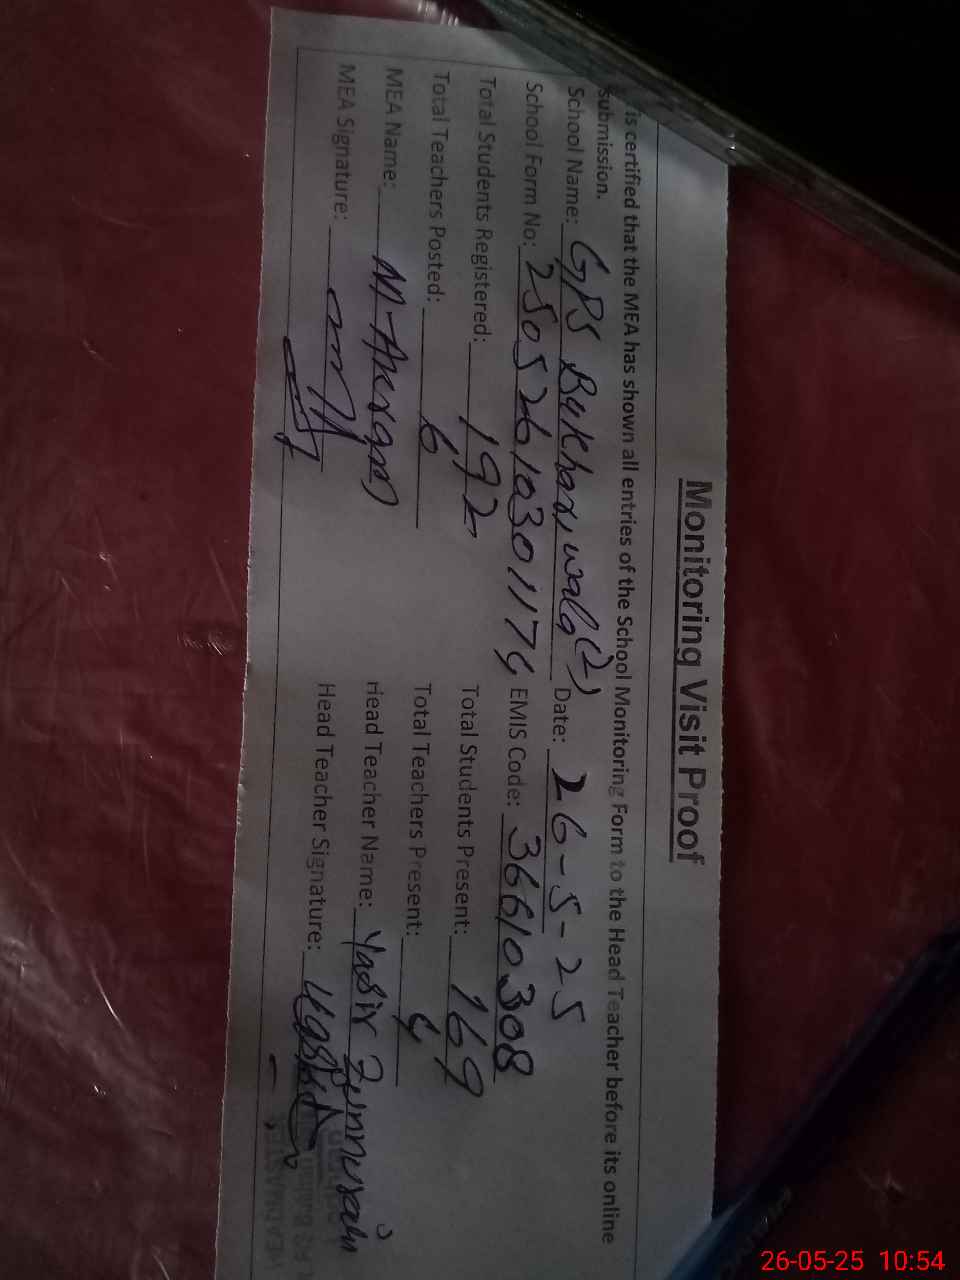 Monitoring Visit Proof
is certified that the MEA has shown all entries of the School Monitoring Form to the Head Teacher before its online
submission.
School Name: GPS Bukhari wala (2) Date: 26-5-25
School Form No: 2505261030117 EMIS Code: 36610308
Total Students Registered: 192 Total Students Present: 169
Total Teachers Posted: 6 Total Teachers Present: 4
MEA Name: M. Head Teacher Name: Yasir
MEA Signature: Head Teacher Signature:
26-05-25 10:54